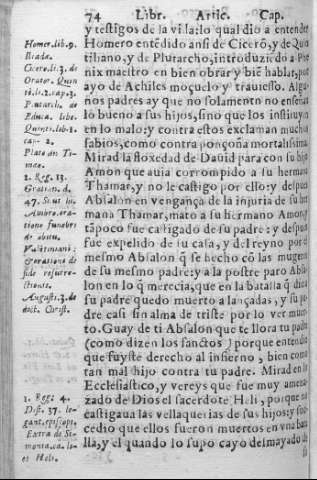 74 Libr. Artic. Cap.
y testigos de la vida: lo qual dio a entender
Homero entẽdido ansi de Cicerõ, y de Quin
tiliano, y de Plutarcho, introduziẽdo a Phe
nix maestro en bien obrar y biẽ hablar, por
ayo de Achiles moçuelo y trauiesso. Algu
nos padres ay que no solamente no enseñan
lo bueno a sus hijos, sino que los instituyen
en lo malo: y contra estos exclaman mucho
sabios, como contra ponçoña mortalissima
Mirad la floxedad de Dauid para con su hijo
Amon que auia corrompido a su hermana
Thamar, y no le castigo por ello: y despues
Absalon en vengança de la injuria de su her
mana Thamar, mato a su hermano Amon, y
tãpoco fue castigado de su padre: y despues
fue expelido de su casa, y del reyno por el
mesmo Absalon q̃ se hecho cõ las mugeres
de su mesmo padre: y a la postre paro Absa
lon en lo q̃ merecia, que en la batalla q̃ dio a
su padre quedo muerto a lançadas, y su pa
dre casi sin alma de triste por lo ver muer-
to. Guay de ti Absalon que te llora tu padre
(como dizen los sanctos) porque entender
que fuyste derecho al infierno, bien como
tan mal hijo contra tu padre. Mirad en el
Ecclesiastico, y vereys que fue muy amena-
zado de Dios el sacerdote Heli, porque no
castigaua las vellaquerias de sus hijos: y suc
cedio que ellos fueron muertos en vna bata
lla, y el quando lo supo cayo desmayado de
Homer. lib. 9.
Iliada.
Cicero. li. 3. de
Orator. Quin
ti. li. 2. cap. 3.
Plutarch. de
Educa. libe.
Quinti. lib. 1.
cap. 2.
Plato in Ti
mæo.
2. Reg. 13.
Gratian. d.
47. Sicut hi.
Ambro. ora
tione funebri
de obitu
Valentiniani:
& oratione de
fide resurre-
ctionis.
August. 3. de
doct. Christ.
1. Reg. 4.
Dist. 37. le-
gant. episcopi.
Extra de Si-
monia. ca. li-
cet Heli.